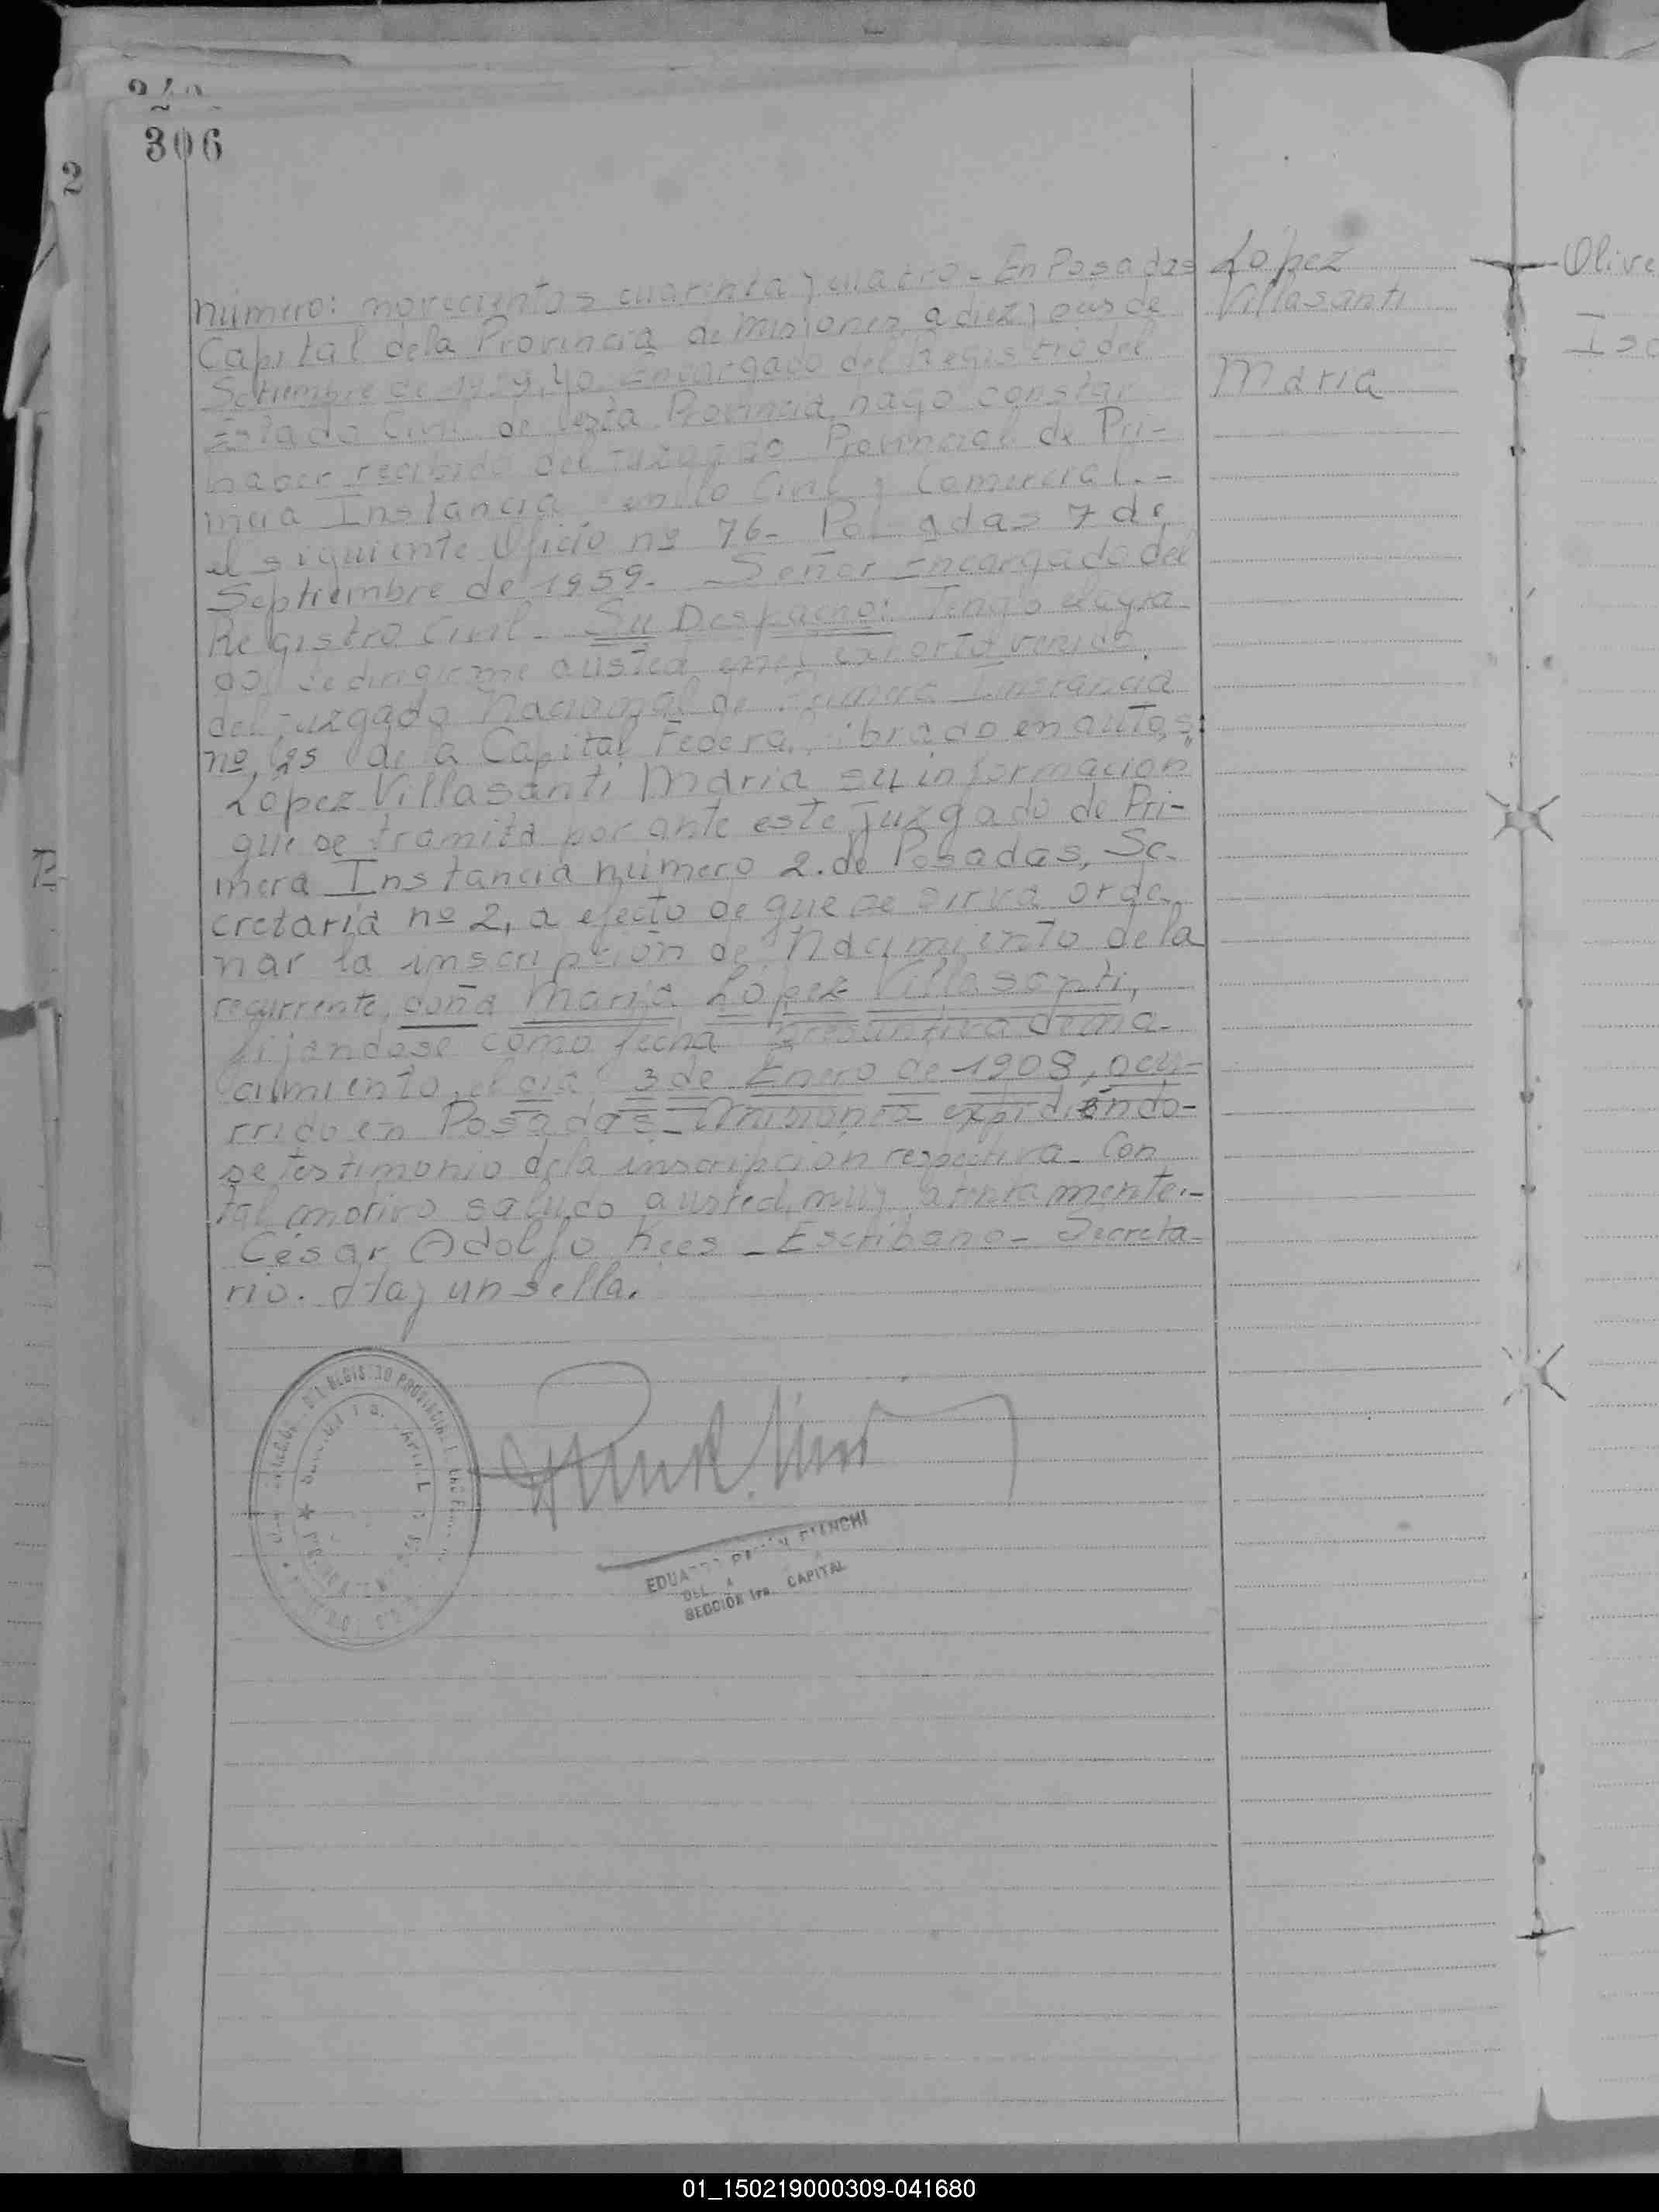 306
2
Lopez
Villasanti
Maria
Número: novecientos cuarenta y cuatro - En Posadas
Capital de la Provincia de Misiones, a diez y seis de
Setiembre de 1959, Yo Encargado del Registro del
Estado Civil de esta Provincia, hago constar
haber recibido del Juzgado Provincial de Pri-
mera Instancia en lo Civil y Comercial. -
el siguiente Oficio nº 76 - Posadas 7 de
Septiembre de 1959 - Señor Encargado del
Registro Civil - Su Despacho: Tengo el agra-
do de dirigirme a usted en el exhorto venido
del Juzgado Nacional de Primera Instancia
nº 25 de la Capital Federal, librado en autos:
"Lopez Villasanti Maria su informacion"
que se tramita por ante este Juzgado de Pri-
mera Instancia número 2. de Posadas, Se-
cretaría nº 2, a efecto de que se sirva orde-
nar la inscripción de Nacimiento de la
recurrente, doña Maria Lopez Villasanti,
fijandose como fecha presuntiva de na-
cimiento, el día 3 de Enero de 1908, ocu-
rrido en Posadas - Misiones expidiendo-
se testimonio de la inscripcion respectiva - Con
tal motivo saludo a usted, muy atentamente. -
César Adolfo Kees - Escribano - Secreta-
rio. Hay un sello.
SECCIÓN 1ra. CAPITAL
Olive
01_150219000309-041680